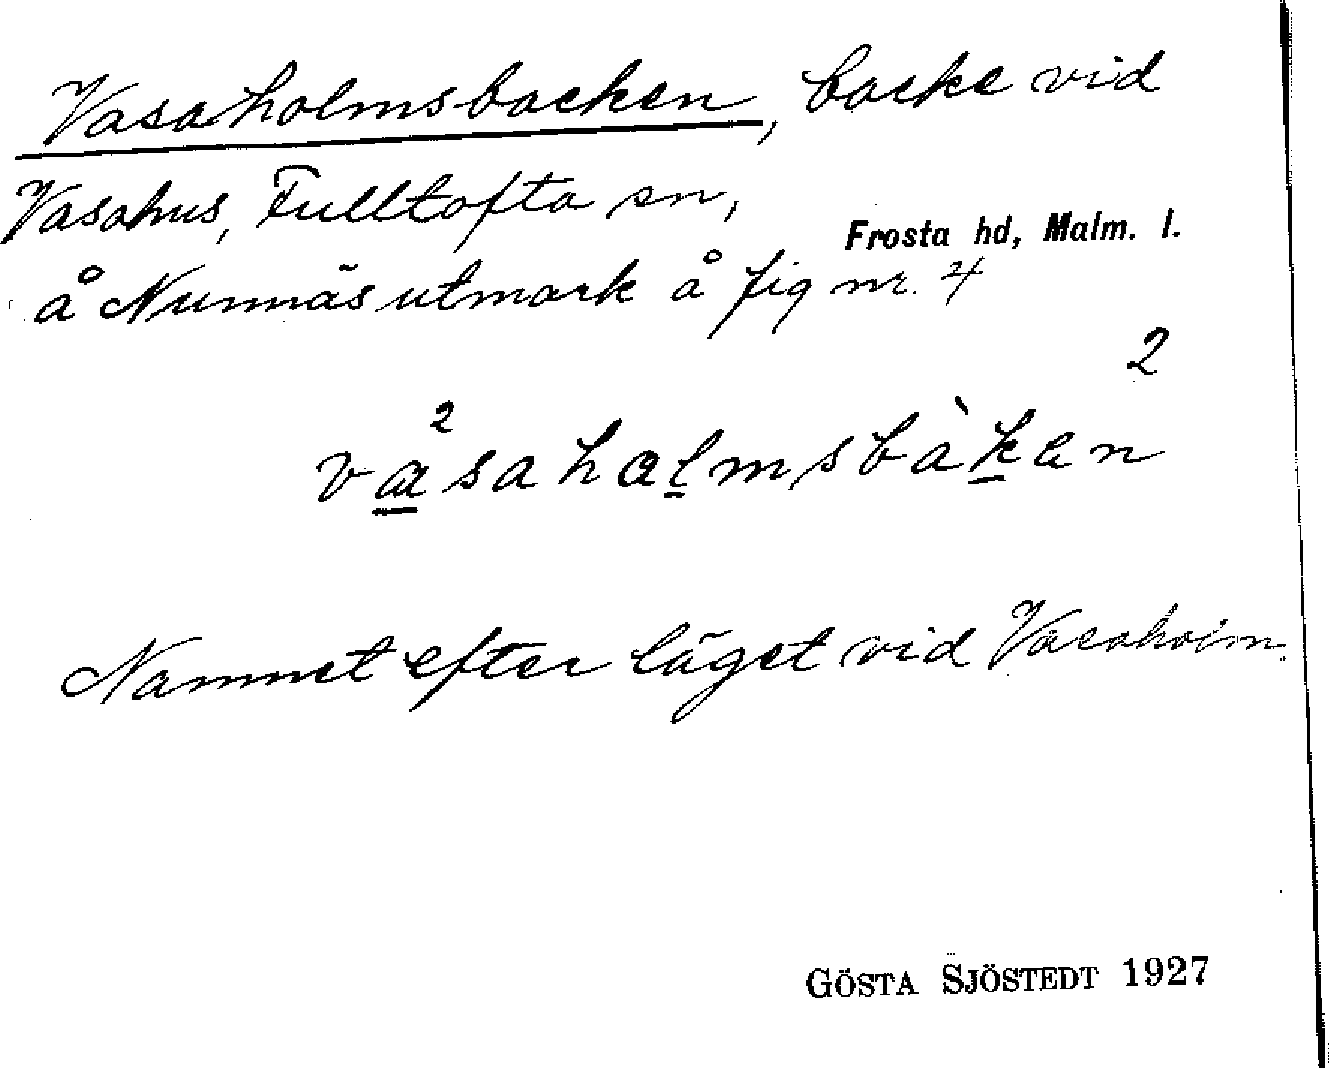 Vasaholmsbacken, backe vid
Vasahus, Fulltofta sn,
Frosta hd, Malm. l.
å Nunnäs utmark å fig nr. 4
2
2
vasahalmsbàken
Namnet efter läget vid Vasaholm.
GÖSTA SJÖSTEDT 1927